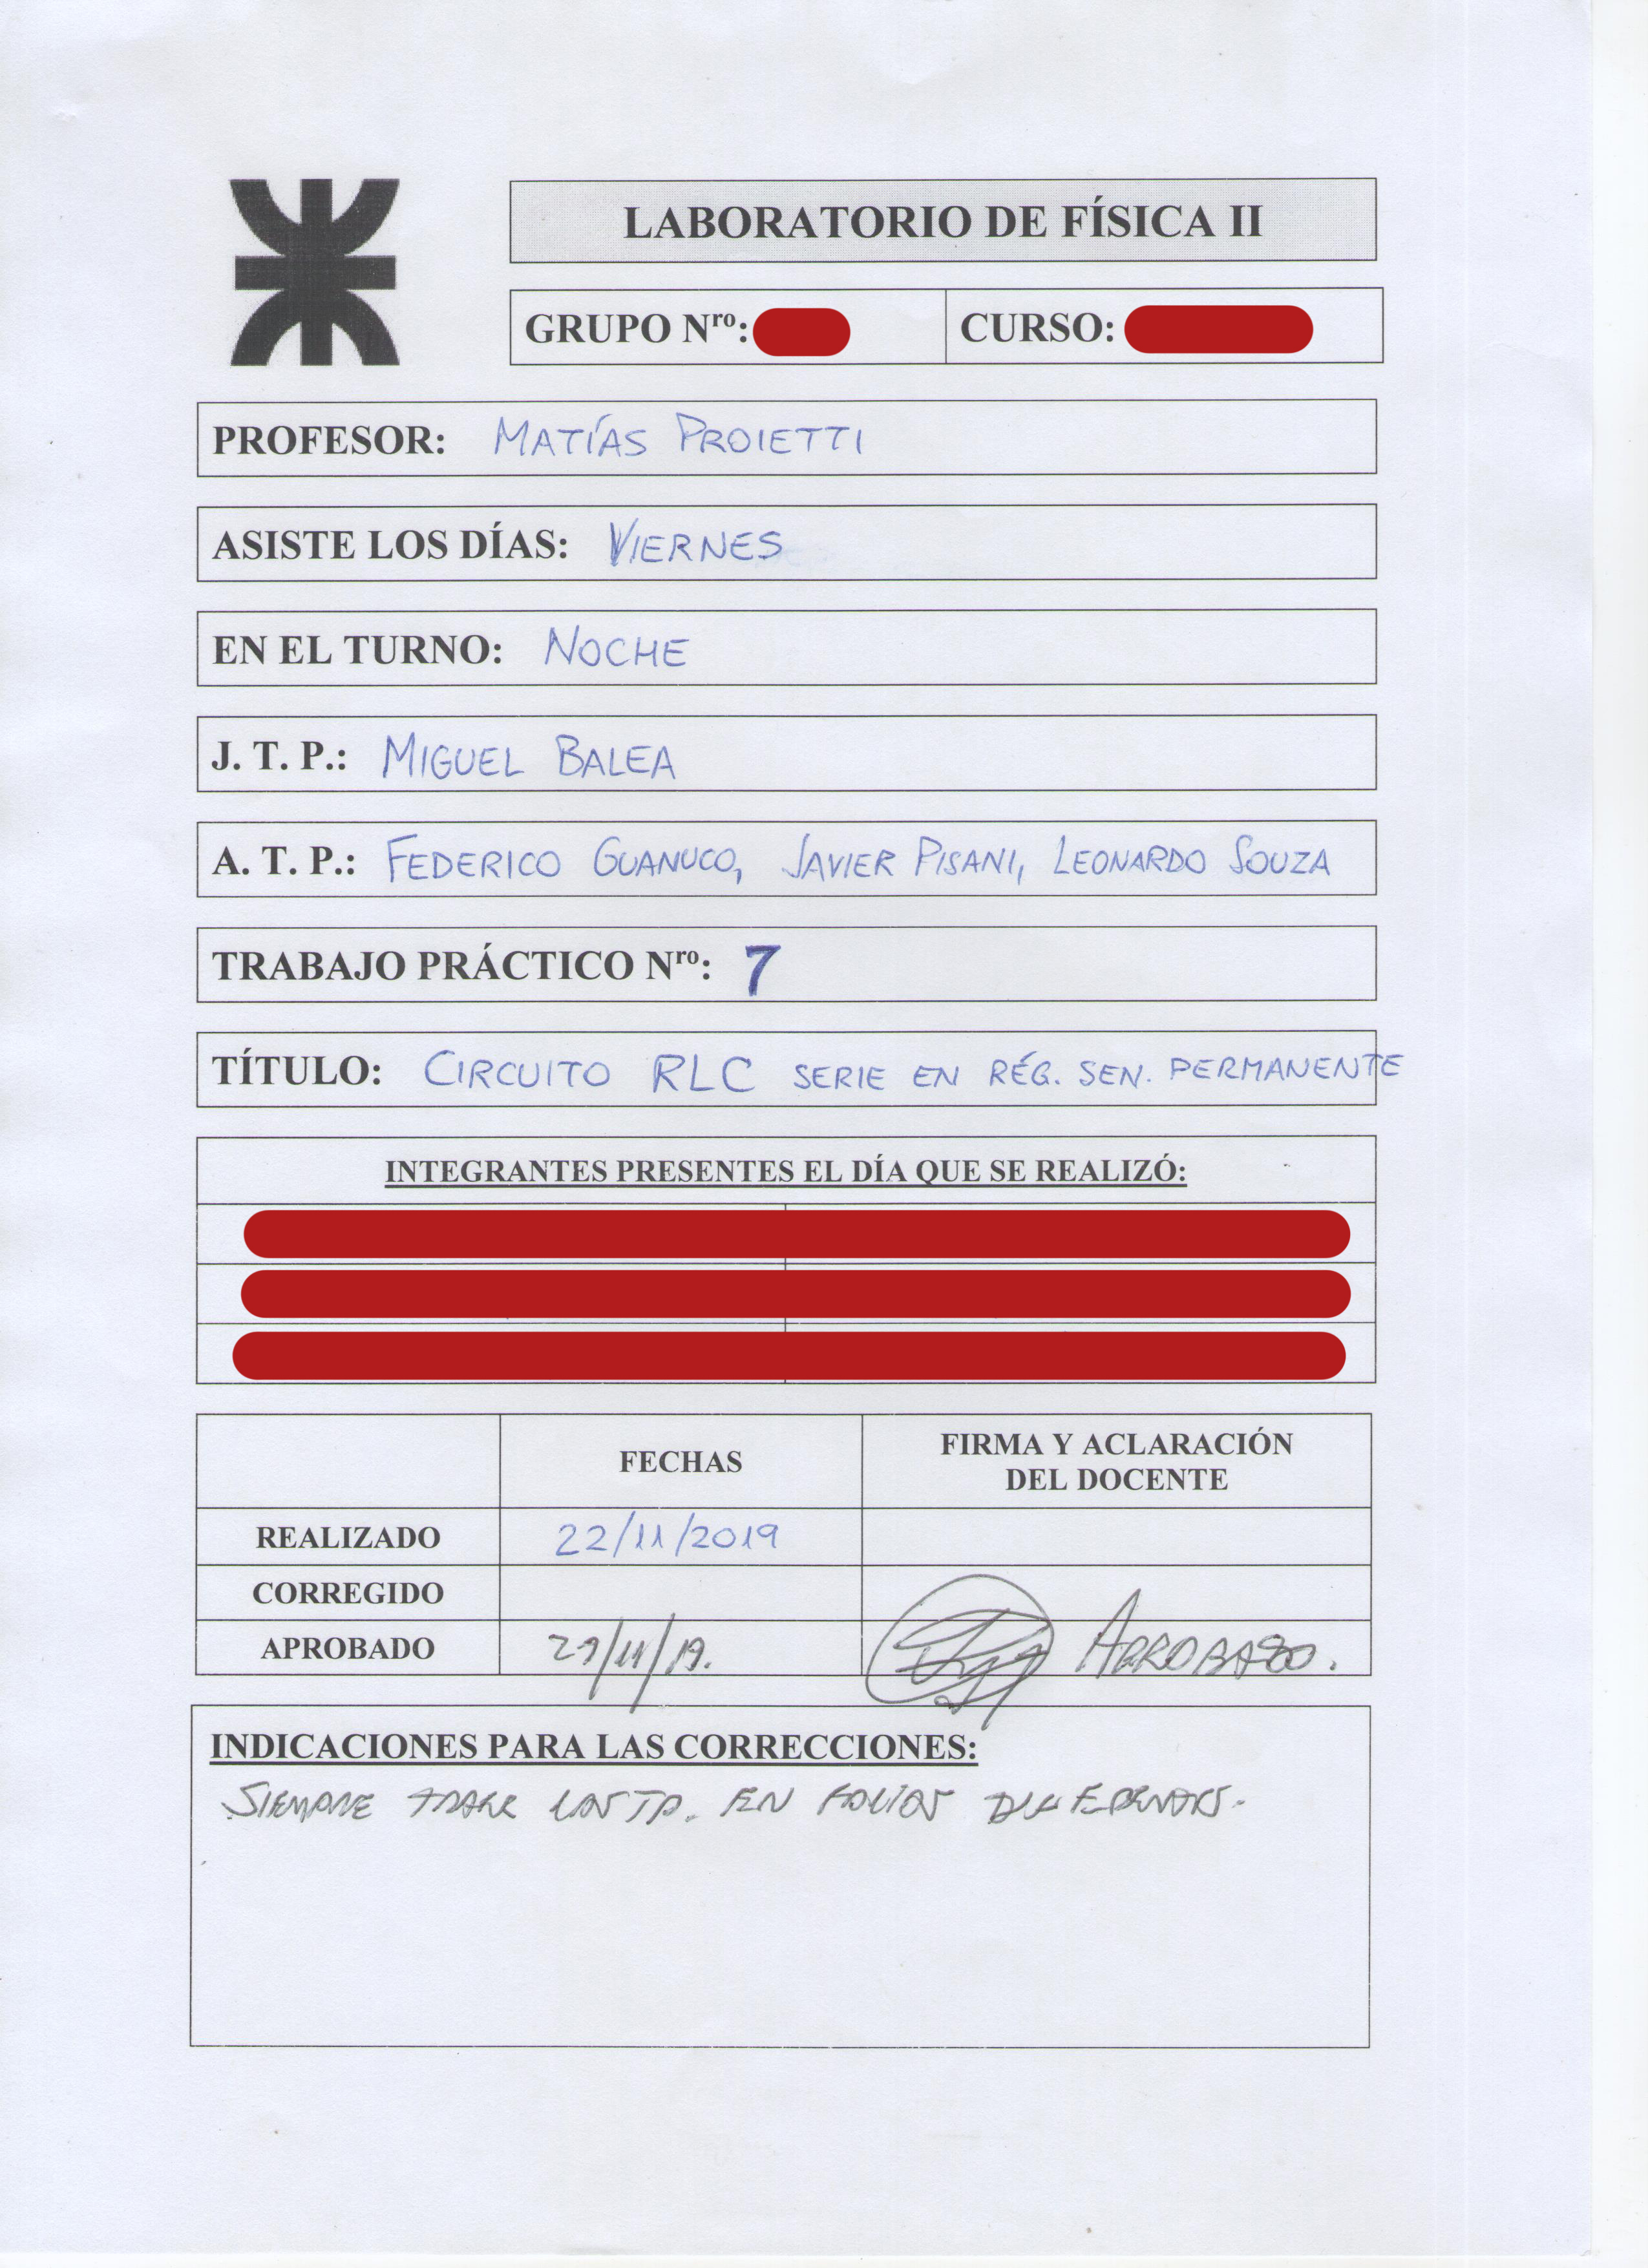 LABORATORIO DE FÍSICA II
GRUPO Nro: CURSO:
PROFESOR: MATÍAS PROIETTI
ASISTE LOS DÍAS: VIERNES
EN EL TURNO: NOCHE
J. T. P.: MIGUEL BALEA
A. T. P.: FEDERICO GUANUCO, JAVIER PISANI, LEONARDO SOUZA
TRABAJO PRÁCTICO Nro: 7
TÍTULO: CIRCUITO RLC SERIE EN RÉG. SEN. PERMANENTE
INTEGRANTES PRESENTES EL DÍA QUE SE REALIZÓ:
FECHAS
FIRMA Y ACLARACIÓN
DEL DOCENTE
REALIZADO 22/11/2019
CORREGIDO
APROBADO 29/11/19.
INDICACIONES PARA LAS CORRECCIONES:
SIEMPRE TRAER LOS TP. EN FOLIOS